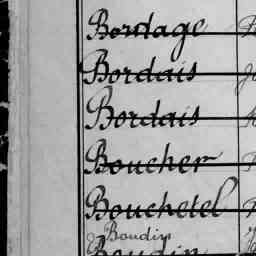 Bordage
Bordais
Bordais
Boucher
Bouchetel
Boudin
Boudin